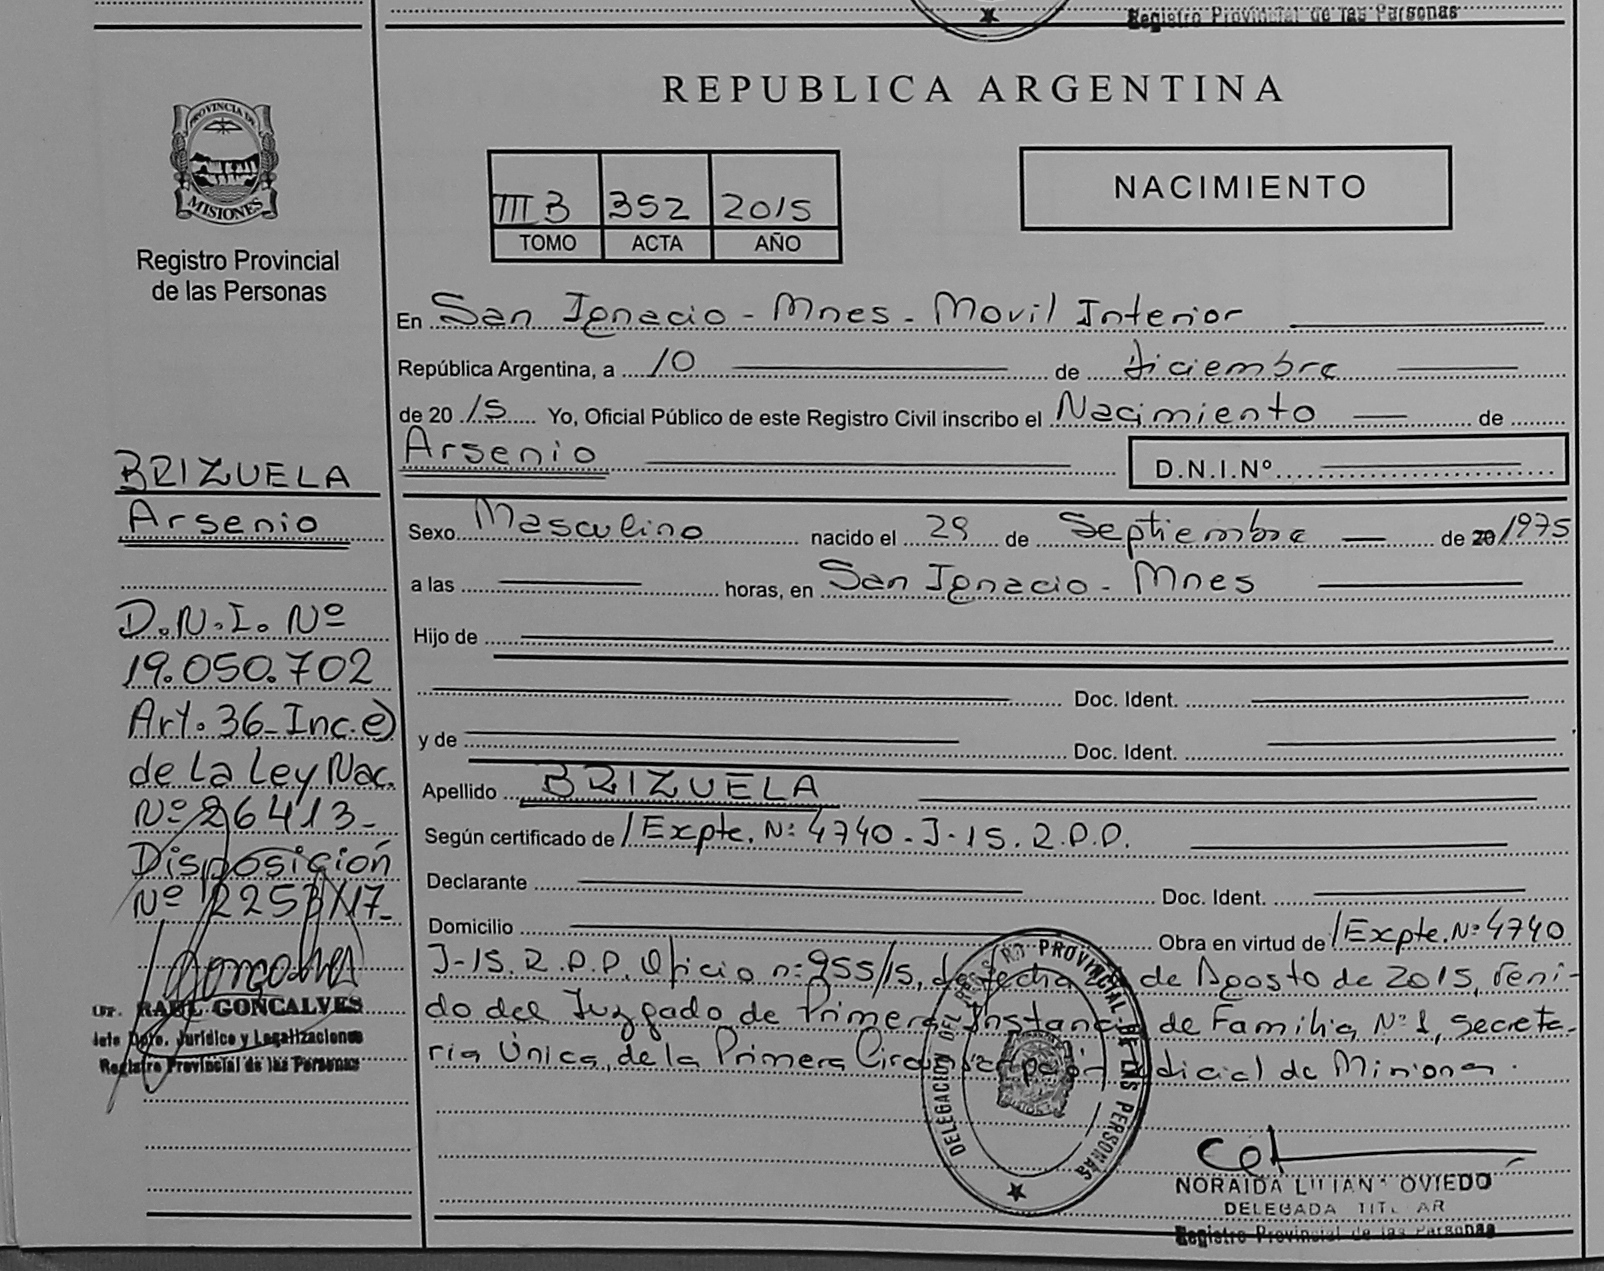 Registro Provincial de las Personas
REPUBLICA ARGENTINA
PROVINCIA DE
MISIONES
Registro Provincial
de las Personas
III B 352 2015
TOMO ACTA AÑO
NACIMIENTO
En San Ignacio - Mnes - Movil Interior
República Argentina, a 10 de diciembre
de 2015 Yo, Oficial Público de este Registro Civil inscribo el Nacimiento de
Arsenio D.N.I.Nº
Sexo Masculino nacido el 29 de Septiembre de 20/1975
a las horas, en San Ignacio - Mnes
Hijo de
Doc. Ident.
y de Doc. Ident.
Apellido BRIZUELA
Según certificado de /Expte. Nº 4740 - J-15. R.P.P.
Declarante Doc. Ident.
Domicilio Obra en virtud de /Expte. Nº 4740
J-15. R.P.P. Oficio nº 955/15, de fecha de Agosto de 2015, veni-
do del Juzgado de Primera Instancia de Familia Nº 1, Secreta-
ria Única, de la Primera Circunscripción Judicial de Misiones.
BRIZUELA
Arsenio
D.N.I. Nº
19.050.702
Art. 36 - Inc. e)
de la Ley Nac.
Nº 26413 -
Disposición
Nº 2253/17 -
Dr. RAUL GONCALVES
Jefe Dpto. Jurídico y Legalizaciones
Registro Provincial de las Personas
DELEGACION DEL REGISTRO PROVINCIAL DE LAS PERSONAS
NORAIDA LILIANA OVIEDO
DELEGADA TITULAR
Registro Provincial de las Personas